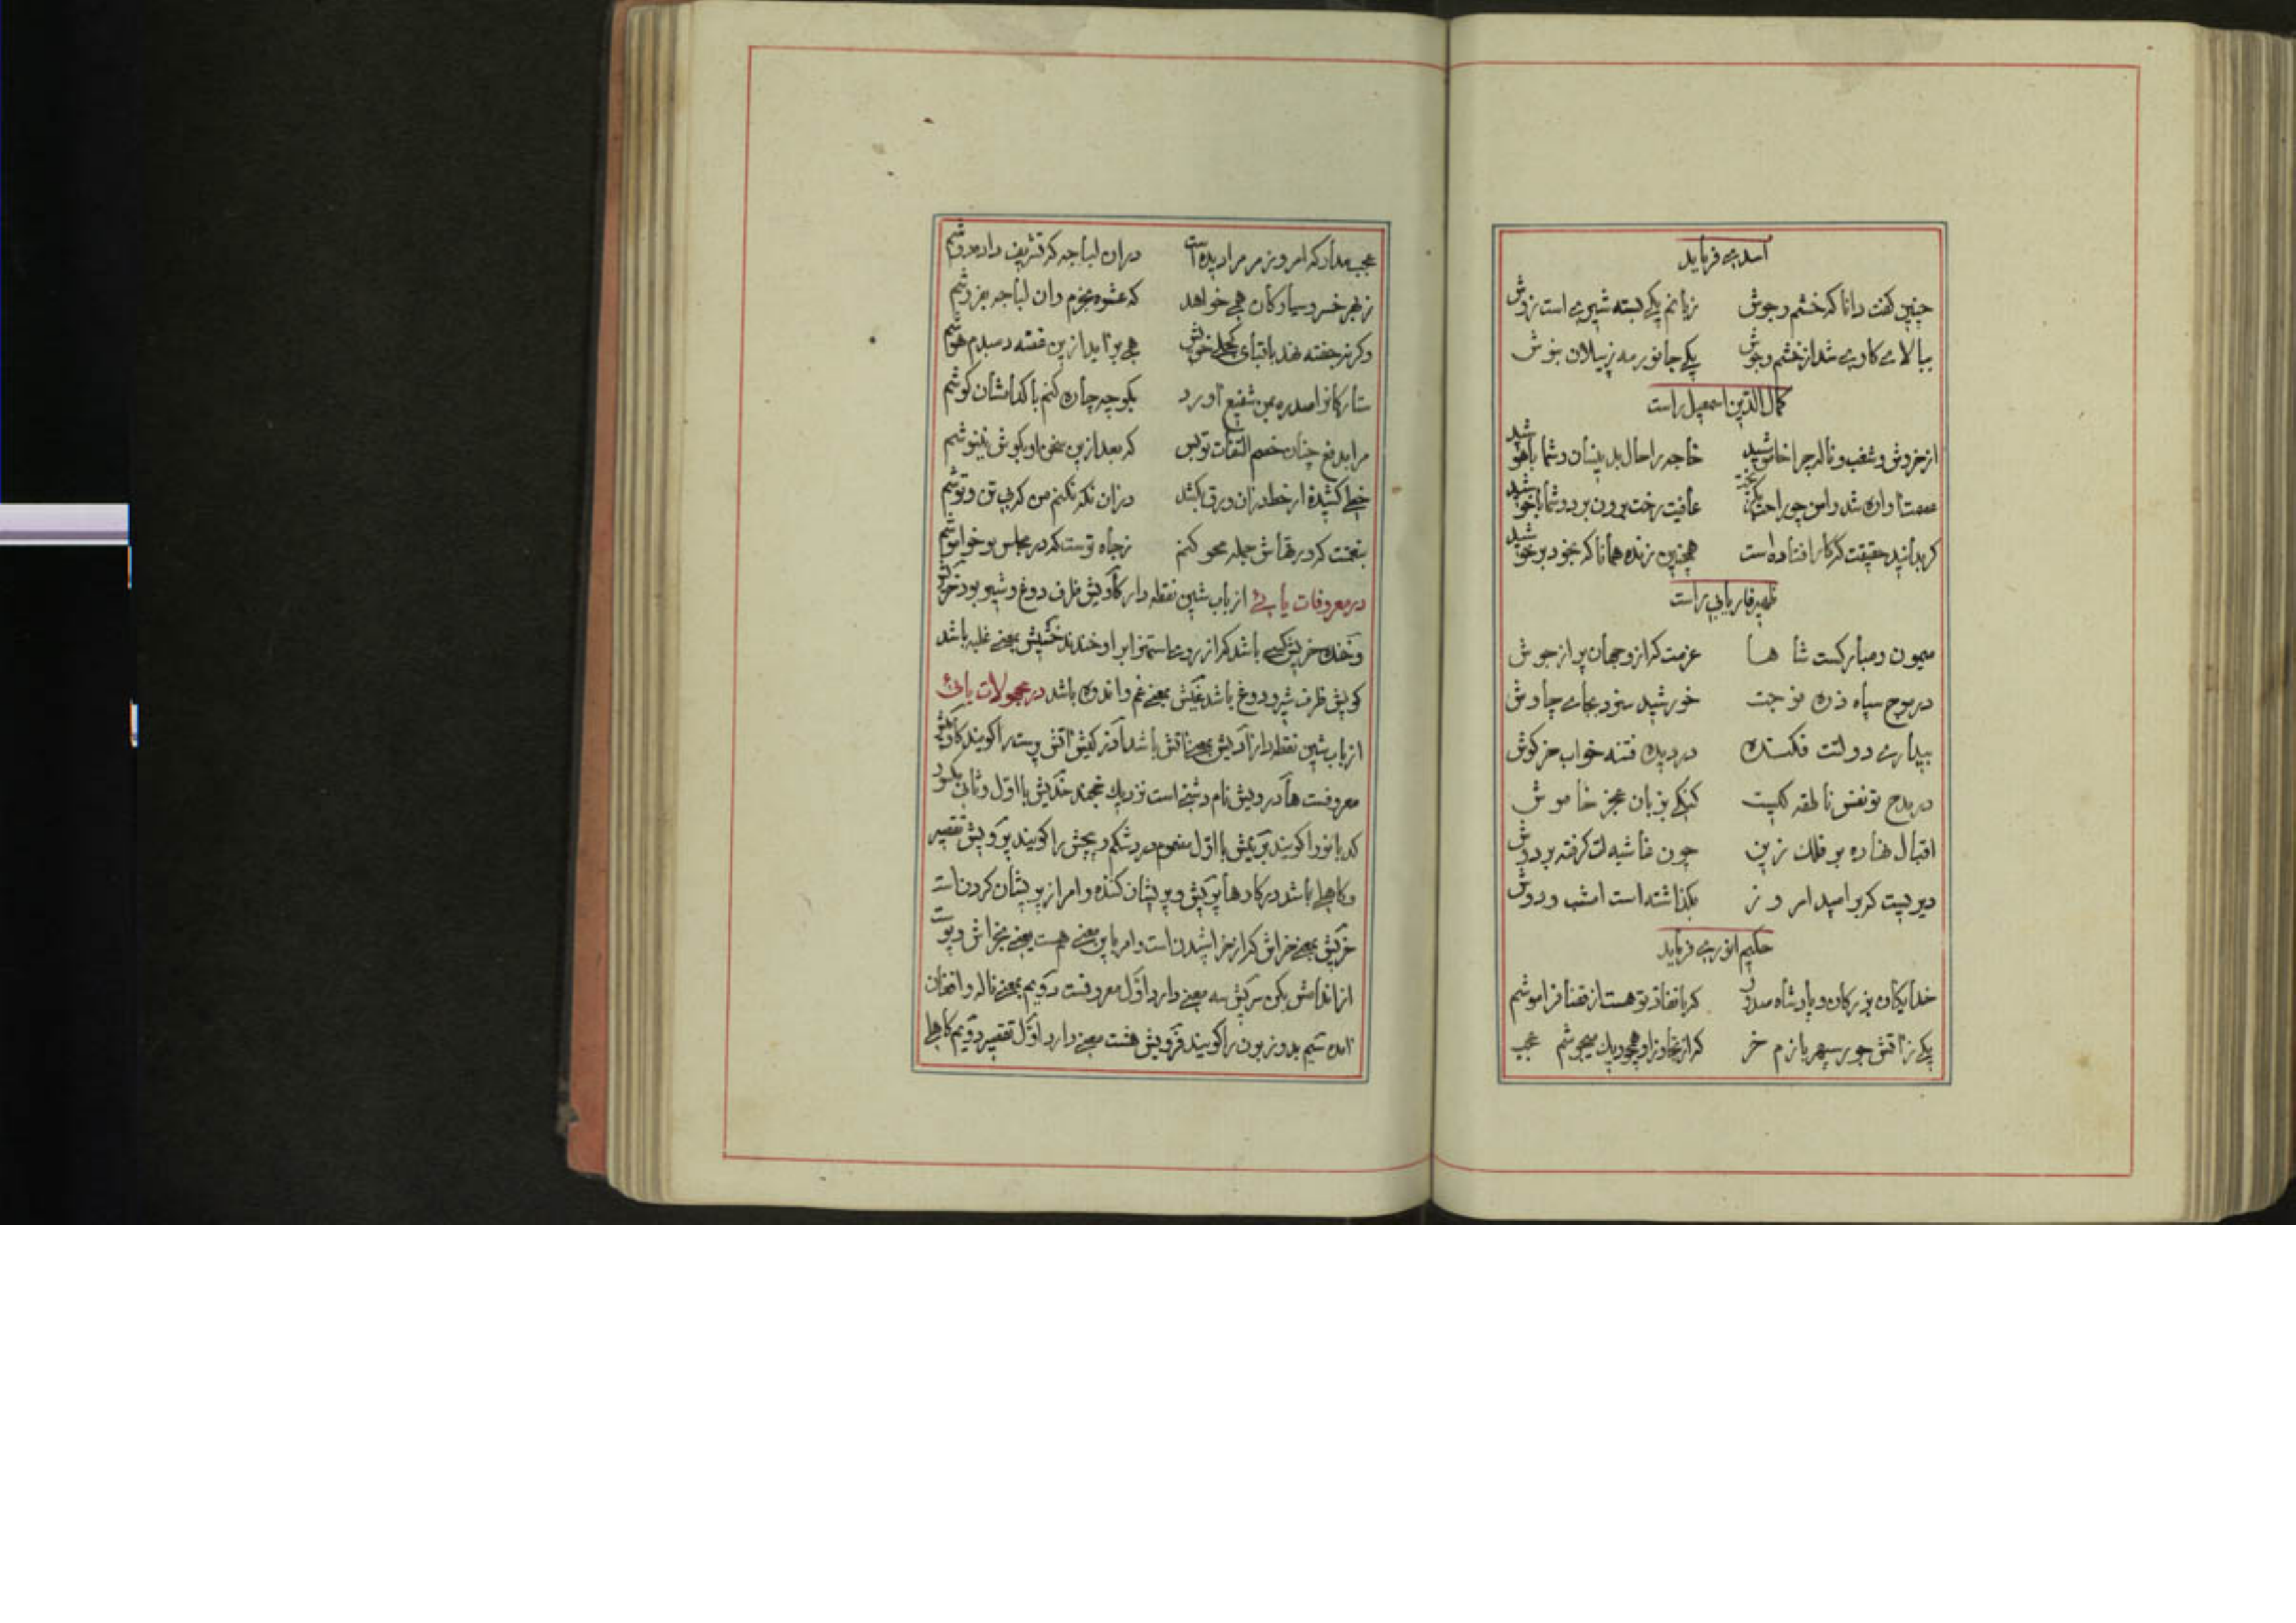 اسدی فرماید
چنین گفت دانا که خشم و جوش زبانم یکی بسته شیری است زوش
ببالای کاری شد از خشم و جوش یکی جانور مه ز پیلان بزوش
کمال الدین اسمعیل راست
از خروش و شغب و ناله چرا خاموشید خاجه را حال بدینسان و شما باهوشید
عافیت رخت برون برد و شما باخوشید
گر بدانید حقیقت که کرا افتاده است همچنین زنده همانا که بخود برخوشید
ظهیر فاریابی راست
میمون و مبارکست شاها عزمت که ازو جهان پر از جوش
در موج سپاه ذره موجت خورشید سزد بجای چاوش
بیداری دولتت فکنده در دیده فتنه خواب خرگوش
در مدح تو نفس ناطقه کیست گنگی بزبان عجز خاموش
اقبال نهاده بر فلک زین چون غاشیه ات گرفته بر دوش
دیریست که بر امید امروز بگذاشته است امشب و دوش
حکیم انوری فرماید
خدایگان بزرگان و پادشاه صدور که با نفاذ تو هست از قضا فراموشم
یکی ز آتش جور سپهر بازم خر که از تجاوز او همچو دیک میجوشم عجب
عجب مدار که امروز مر مرا دیده است در آن لباجه که تشریف داده دوشم
ز بهر خسرو سیارگان همی خواهد که عشوه بخرم وان لباجه بفروشم
وگر نه جفته نهد با قبای کحلی خویش همی برآید ازین غصه دمبدم هوشم
ستارگان را صدره بمن شفیع آورد بگو چه چاره کنم با کدامشان کوشم
مرا بدفع چنان خصم التفات تو بس که بعد ازین سخن او بگوش ننیوشم
خطی کشیده از خط در آن ورق بکشد در آن نگر نکنم من که بی تن و توشم
بنعمتت که در بقاش جمله محو کنم ز جاه تو ست که در مجلس تو خواموشم
در معروفات یایی از باب شین نقطه دار گاویش ظرف دوغ و شیر بود خریش
و خنده خریش کسی باشد که از روی استهزا بر او خندند خشیش بمعنی غلبه باشد
کویش ظرف شیر و دوغ باشد غیش بمعنی غم و اندوه باشد در مجهولات یائی
از باب شین نقطه دار آدیش بمعنی آتش باشد آذر کیش آتش پرست را گویند گاومیش
معروفست هادرویش نام دشتی است نزدیک خجند خدیش با اول و ثانی مکسور
کدبانو را گویند بریش با اول مضموم درد شکم و پیچش را گویند پرویش تقصیر
و کاهلی باشد در کارها پریش و پریشان کننده و امر از پریشان کردن است
خریش بمعنی خراش که از خراشیدن است و امر باین معنی هست یعنی بخراش و پوست
از اندامش بکن سریش سه معنی دارد اول معروفست دویم بمعنی ناله و افغان
آمده سیم بد و زبون را گویند فرویش هشت معنی دارد اول تقصیر دویم کاهلی